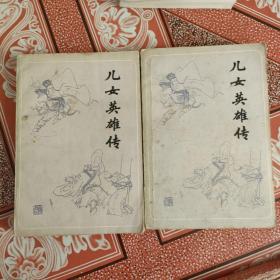 儿女英雄传
儿女英雄传